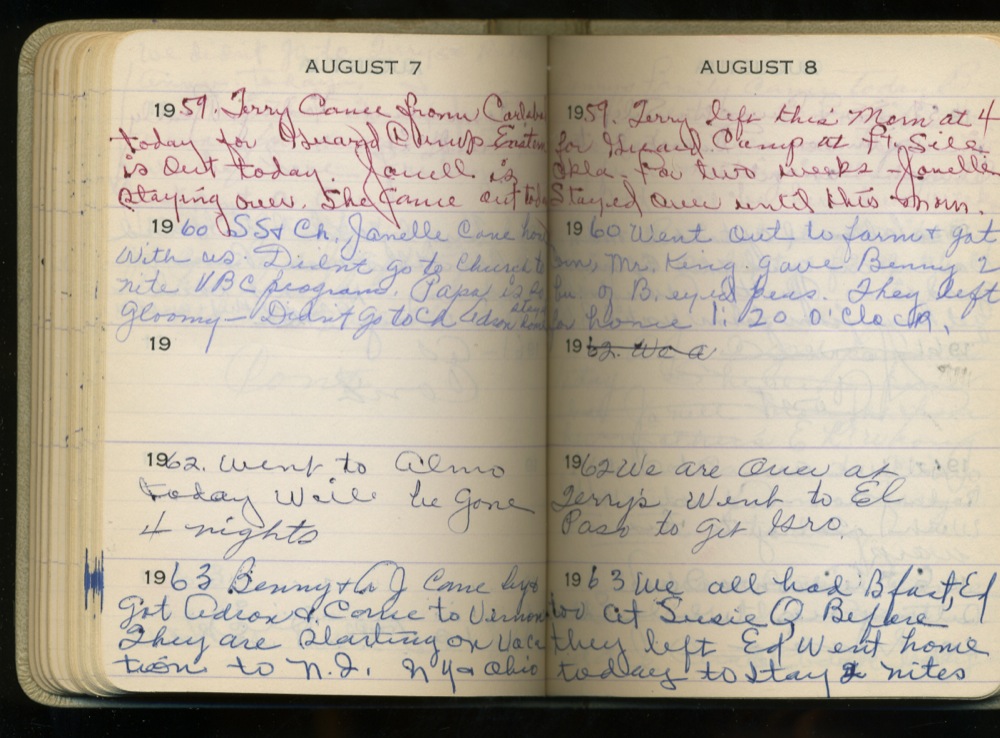 AUGUST 7
1959. Terry Came from Carlsba
today for Guard Camp Easter
is out today. Janell is
staying over. She came out toda
1960 SS & Ch. Janelle Came hom
With us. Didnt go to Church to
nite VBC program. Papa is so
gloomy — Didn't go to Ch Edson stays home
19
1962. Went to Almo
today Will be Gone
4 nights
1963 Benny & A J Came by &
Got Edson & Came to Vernon
They are starting on Vaca
tion to N.J. N Y & Ohio
AUGUST 8
1959. Terry left this Morn at 4
for Guard Camp at Ft. Sill
Okla. For two weeks - Janelle
Stayed over until this morn.
1960 Went out to farm & got
Mr. King gave Benny 2
bu. of B. eyed peas. They left
for home 1:20 O'Clock.
1962. We a
1962 We are Over at
Terry's Went to El
Paso to Get Gro.
1963 We all had Bfast, Ed
too at Susie Q Before
they left Ed Went home
today to stay 2 nites